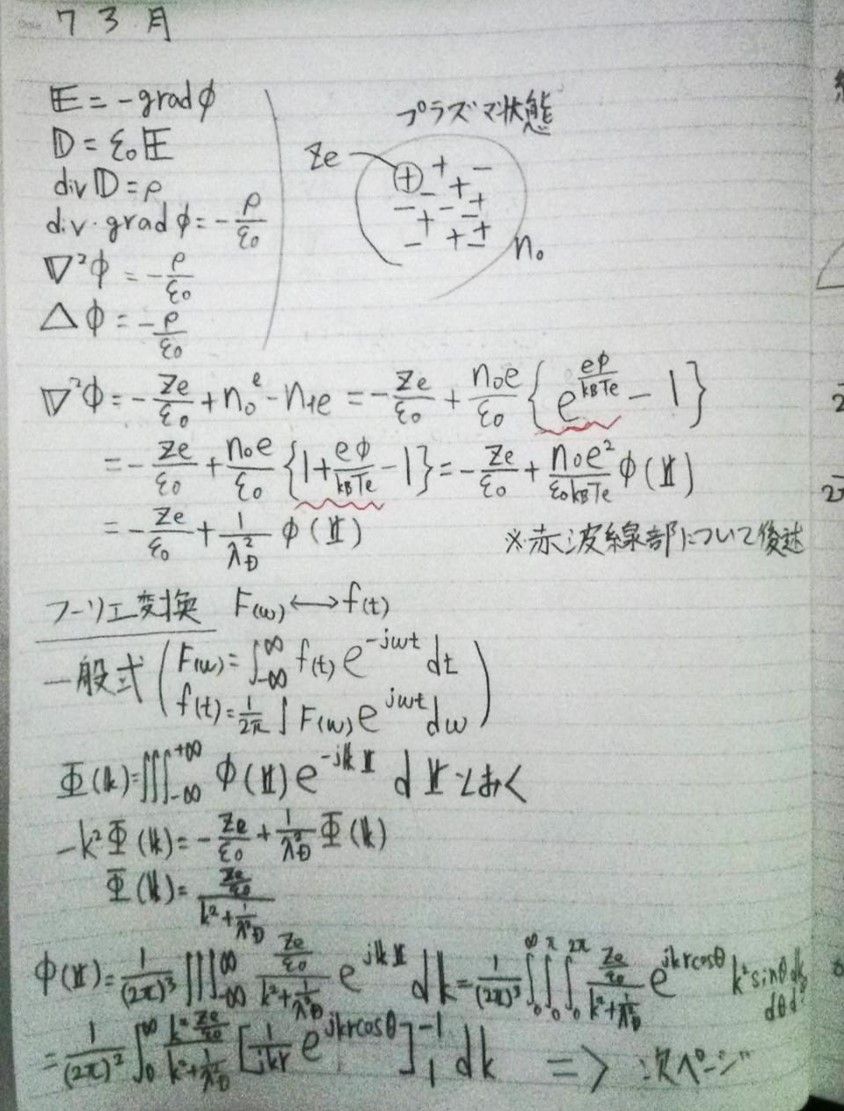 7 3 月
𝔼 = -grad φ
𝔻 = ε₀𝔼
div 𝔻 = ρ
div・grad φ = -ρ/ε₀
∇²φ = -ρ/ε₀
△φ = -ρ/ε₀
プラズマ状態
Ze
+ + -
- +
- + - - +
- + - +
n₀
∇²φ = -Ze/ε₀ + n₀e - n₁e = -Ze/ε₀ + n₀e/ε₀ {e^(eφ/kBTe) - 1}
= -Ze/ε₀ + n₀e/ε₀ {1 + eφ/kBTe - 1} = -Ze/ε₀ + n₀e²/ε₀kBTe φ(𝕣)
= -Ze/ε₀ + 1/λD² φ(𝕣)
※赤波線部について後述
フーリエ変換 F(ω) ⟷ f(t)
一般式 ( F(ω) = ∫_{-∞}^{∞} f(t) e^{-jωt} dt
f(t) = 1/2π ∫ F(ω) e^{jωt} dω )
Φ(𝕜) = ∭_{-∞}^{+∞} φ(𝕣) e^{-j𝕜𝕣} d𝕣 とおく
-k²Φ(𝕜) = -Ze/ε₀ + 1/λD² Φ(𝕜)
Φ(𝕜) = (Ze/ε₀)/(k² + 1/λD²)
φ(𝕣) = 1/(2π)³ ∭_{-∞}^{∞} (Ze/ε₀)/(k² + 1/λD²) e^{j𝕜𝕣} d𝕜 = 1/(2π)³ ∫₀^∞ ∫₀^π ∫₀^{2π} (Ze/ε₀)/(k² + 1/λD²) e^{jkrcosθ} k² sinθ dk dθ
= 1/(2π)² ∫₀^∞ (k² Ze/ε₀)/(k² + 1/λD²) [1/jkr e^{jkrcosθ}]₁^{-1} dk ⇒ 次ページ